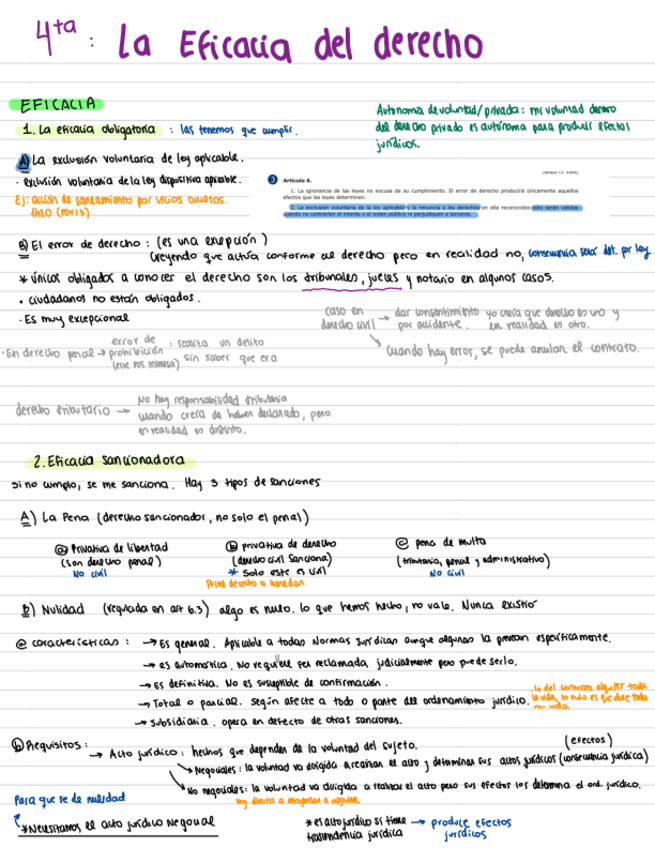 4ta : La Eficacia del derecho
EFICACIA
1. La eficacia obligatoria : las tenemos que cumplir.
Autonomía de voluntad/privada: mi voluntad dentro
del derecho privado es autónoma para producir efectos
jurídicos.
A) La exclusión voluntaria de ley aplicable.
· exclusión voluntaria de la ley dispositiva aplicable.
Ej: acción de saneamiento por vicios ocultos.
Artículo 6.
1. La ignorancia de las leyes no excusa de su cumplimiento. El error de derecho producirá únicamente aquellos
efectos que las leyes determinen.
2. La exclusión voluntaria de la ley aplicable y la renuncia a los derechos en ella reconocidos sólo serán válidas
cuando no contraríen el interés o el orden público ni perjudiquen a terceros.
B) El error de derecho : (es una excepción)
Creyendo que actúa conforme al derecho pero en realidad no, consecuencia será det. por ley
* únicos obligados a conocer el derecho son los tribunales, jueces y notario en algunos casos.
• ciudadanos no están obligados.
· Es muy excepcional
caso en derecho civil → dar consentimiento por accidente. yo creía que aquello es uno y en realidad es otro.
↘ Cuando hay error, se puede anular el contrato.
· En derecho penal → error de prohibición (ese nos interesa) : realiza un delito sin saber que era
derecho tributario → No hay responsabilidad tributaria
cuando creía de haber declarado, pero
en realidad es distinto.
2. Eficacia sancionadora
si no cumplo, se me sanciona. Hay 3 tipos de sanciones
A) La Pena (derecho sancionador, no solo el penal)
ⓐ Privativa de libertad
(son derecho penal)
No civil
ⓑ privativa de derecho
(derecho civil sanciona)
* solo este es civil
Priva derecho a heredar
ⓒ pena de multa
(tributaria, penal y administrativo)
No civil
B) Nulidad (regulada en art 6.3) algo es nulo. lo que hemos hecho, no vale. Nunca existió
ⓐ características : → Es general. Aplicable a todas Normas Jurídicas aunque algunas la prevean específicamente.
→ es automática. No requiere ser reclamada judicialmente pero puede serlo.
→ Es definitiva. No es susceptible de confirmación.
→ Total o parcial. según afecte a todo o parte del ordenamiento jurídico.
→ Subsidiaria. opera en defecto de otras sanciones.
ⓑ Requisitos : → Acto jurídico : hechos que dependen de la voluntad del sujeto.
(efectos)
↘ Negociales : la voluntad va dirigida a realizar el acto y determinar sus actos jurídicos (consecuencia jurídica)
↘ No negociales : la voluntad va dirigida a realizar el acto pero sus efectos los determina el ord. jurídico.
Para que se de nulidad
* Necesitamos el acto jurídico Negocial
* es acto jurídico si tiene trascendencia jurídica → produce efectos jurídicos